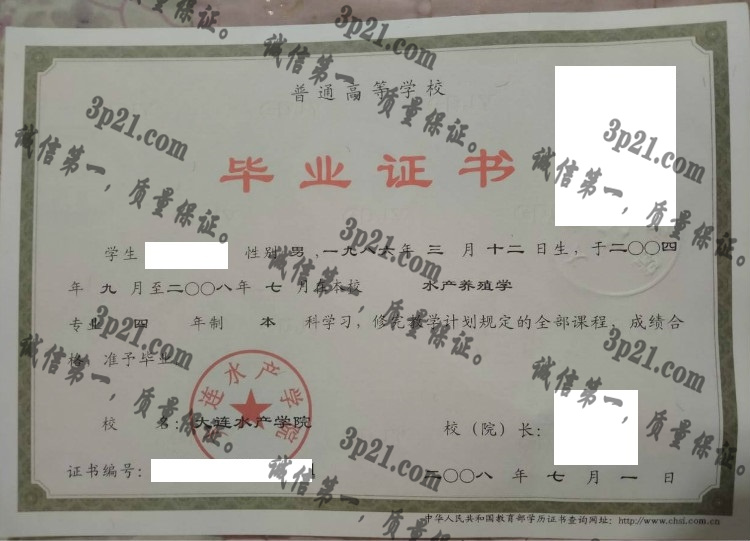 普通高等学校
毕业证书
学生 性别 男 ,一九八六年 三 月 十二 日生，于二〇〇四
年 九 月至二〇〇八年 七 月在本校 水产养殖学
专业 四 年制 本 科学习，修完教学计划规定的全部课程，成绩合
格，准予毕业
校 名：大连水产学院 校（院）长：
连水产学院
证书编号：
二〇〇八 年 七 月 一 日
中华人民共和国教育部学历证书查询网址：http://www.chsi.com.cn
质量保证。
3p21.com
诚信第一，质量保证。
3p21.com
诚信第一，质量保证。
3p21.com
诚信第一，质量保证。
3p21.com
诚信第一，质量保证。
3p21.com
诚信第一，质量保证。
3p21.com
诚信第一，质量保证。
3p21.com
诚信第一，质量保证。